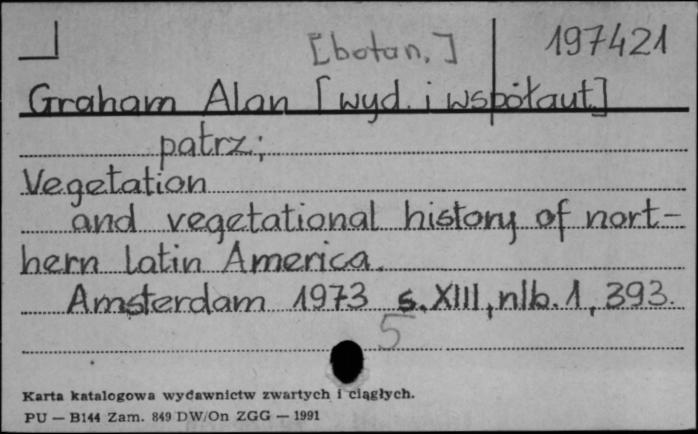 [botan.] 197421
Graham Alan [wyd. i współaut.]
patrz:
Vegetation
and vegetational history of nort-
hern Latin America.
Amsterdam 1973 s. XIII, nlb. 1, 393.
5
Karta katalogowa wydawnictw zwartych i ciągłych.
PU — B144 Zam. 849 DW/On ZGG — 1991